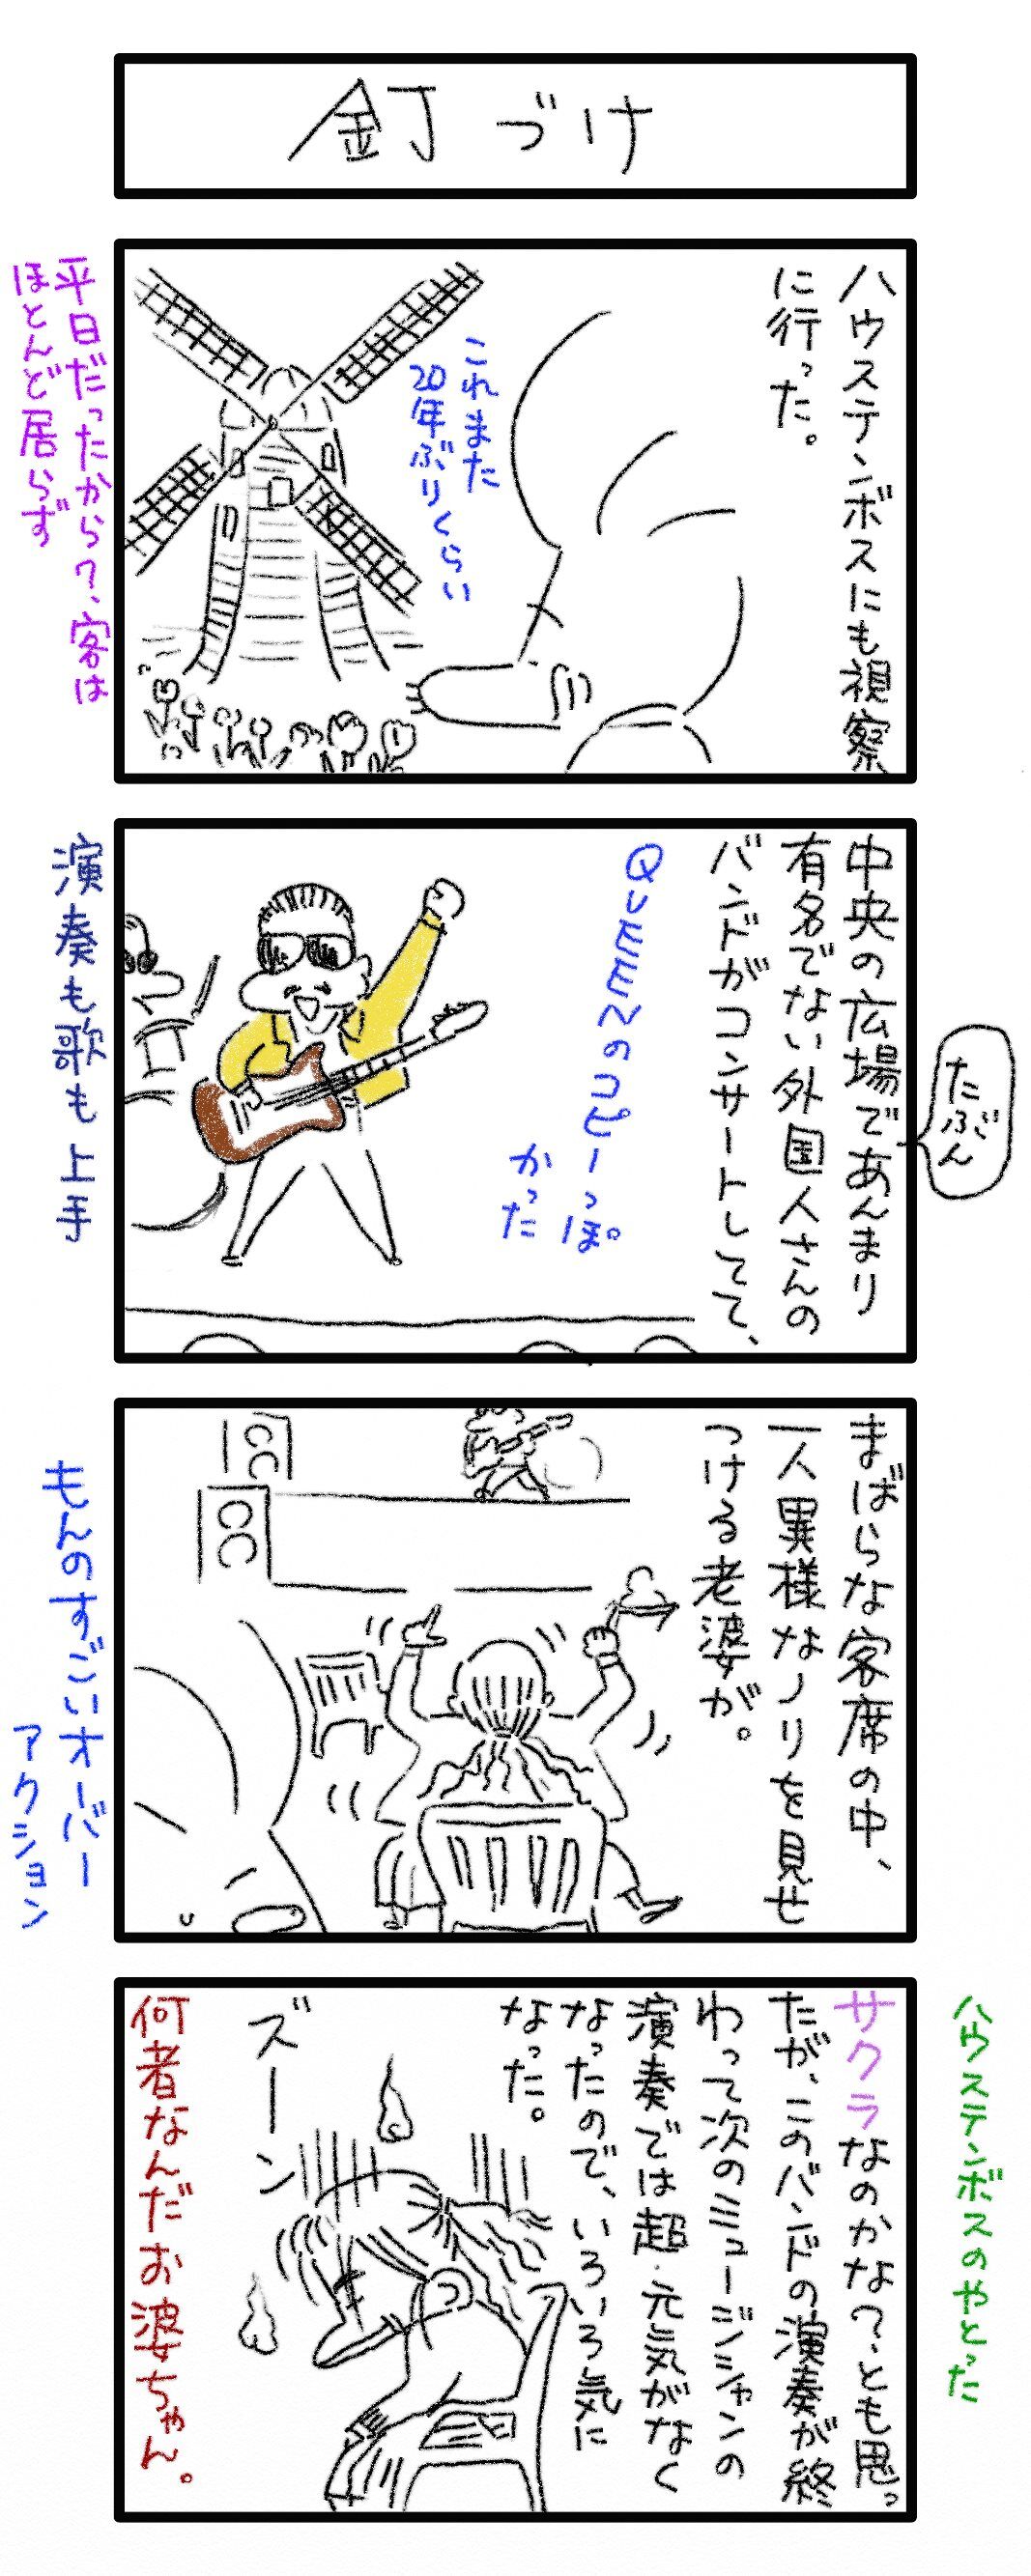 釘づけ
ハウステンボスにも視察
に行った。
これまた
20年ぶりくらい
平日だったから?、客は
ほとんど居らず
たぶん
中央の広場であんまり
有名でない外国人さんの
バンドがコンサートしてて、
QUEENのコピーっぽ
かった
演奏も歌も上手
まばらな客席の中、
一人異様なノリを見せ
つける老婆が。
もんのすごいオーバー
アクション
ハウステンボスのやとった
サクラなのかな?とも思っ
たが、このバンドの演奏が終
わって次のミュージシャンの
演奏では超・元気がなく
なったので、いろいろ気に
なった。
ズーン
何者なんだお婆ちゃん。